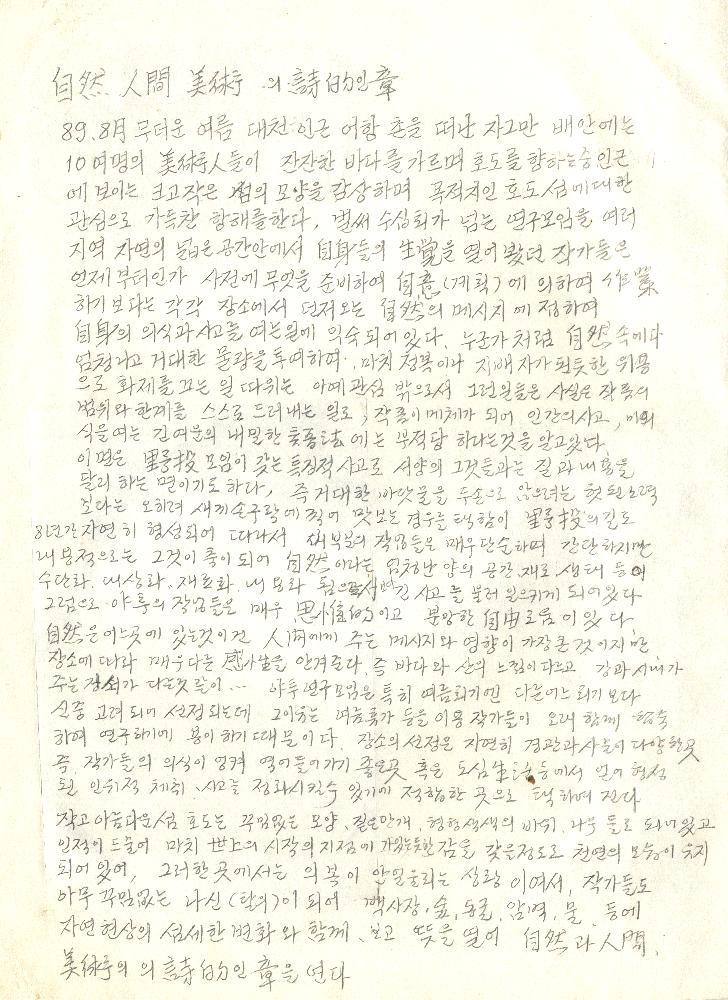 自然 人間 美術 의 詩的인 章
89. 8月 무더운 여름 대천 인근 어항 촌을 떠난 자그만 배안에는
10여명의 美術人들이 잔잔한 바다를 가르며 호도를 향하는중 인근
에 보이는 크고작은 섬의 모양을 감상하며 목적지인 호도 섬에대한
관심으로 가득찬 항해를한다. 벌써 수십회가 넘는 연구모임을 여러
지역 자연의 넓은 공간안에서 自身들의 生覺을 열어 봤던 작가들은
언제부터인가 사전에 무엇을 준비하여 自意(계획)에 의하여 作業
하기 보다는 각각 장소에서 던져오는 自然의 메시지에 정하여
自身의 의식과 사고를 여는일에 익숙되어있다. 누군가처럼 自然속에다
엄청나고 거대한 물량을 투여하여, 마치 정복이나 지배자가 된듯한 위용
으로 화제를 끄는 일 따위는 아예 관심 밖으로서 그런일들은 사실은 작품의
범위와 한계를 스스로 드러내는 일로, 작품이 메체가 되어 인간의사고, 미의
식을여는 긴여운의 내밀한 言語法에는 부적당 하다는것을 알고있다
이면은 野投 모임이 갖는 특징적 사고로 서양의 그것들과는 질과 내용을
달리 하는 면이기도 하다, 즉 거대한 바닷물을 두손으로 않으려는 헛된 노력
보다는 오히려 새끼손구락에 찍어 맛보는 경우를 택함이 野投의 길도
81년간 자연히 형성되어 따라서 대부분의 작업들은 매우단순하며 간단하지만
내용적으로는 그것이 축이 되어 自然이라는 엄청난 양의 공간, 재료, 생태 등이
수단화. 내상화. 재료화. 내용화 됨으로서 사고를 불러 일으키게 되어있다
그럼으로 야투의 작업들은 매우 思惟的이고 분방한 自由로움이 있다
自然은 어느곳에 있는것이건 人間에게 주는 메시지와 영향이 가장큰 것이지만
장소에 따라 매우다른 感性을 안겨준다. 즉 바다와 산의 느낌이 다르고 강과 시내가
주는 정취가 다른것 같이... 야투연구모임은 특히 여름회기엔 다른어느 회기 보다
신중 고려 되어 선정되는데 그이유는 여름휴가 등을 이용 작가들이 오래 함께 숙
하며 연구하기에 용이하기 때문이다. 장소의 선정은 자연히 경관과 사물이 다양한곳
즉. 작가들의 의식이 엉켜 엮어들어가기 좋은곳 혹은 도심 生活 등에서 얻어 형성
된 인위적 체취, 사고를 정화시킬수 있기에 적합한 곳으로 택하여 진다
작고 아름다운 섬 호도는 꾸밈없는 모양, 짙은안개, 형형색색의 바위, 나무 들로 되어있고
인적이 드물어 마치 世上의 시작의 지점에 가있는듯한 감을 갖을정도로 천연의 모습이 유지
되어 있어, 그러한 곳에서는 의복이 안어울리는 상황 이여서, 작가들도
아무 꾸밈없는 나신(탈의)이 되어 백사장. 숲, 동굴, 암벽, 물, 등에
자연현상의 섬세한 변화와 함께 보고 뜻을 열어 自然과 人間,
美術의 의 詩的인 章을 연다